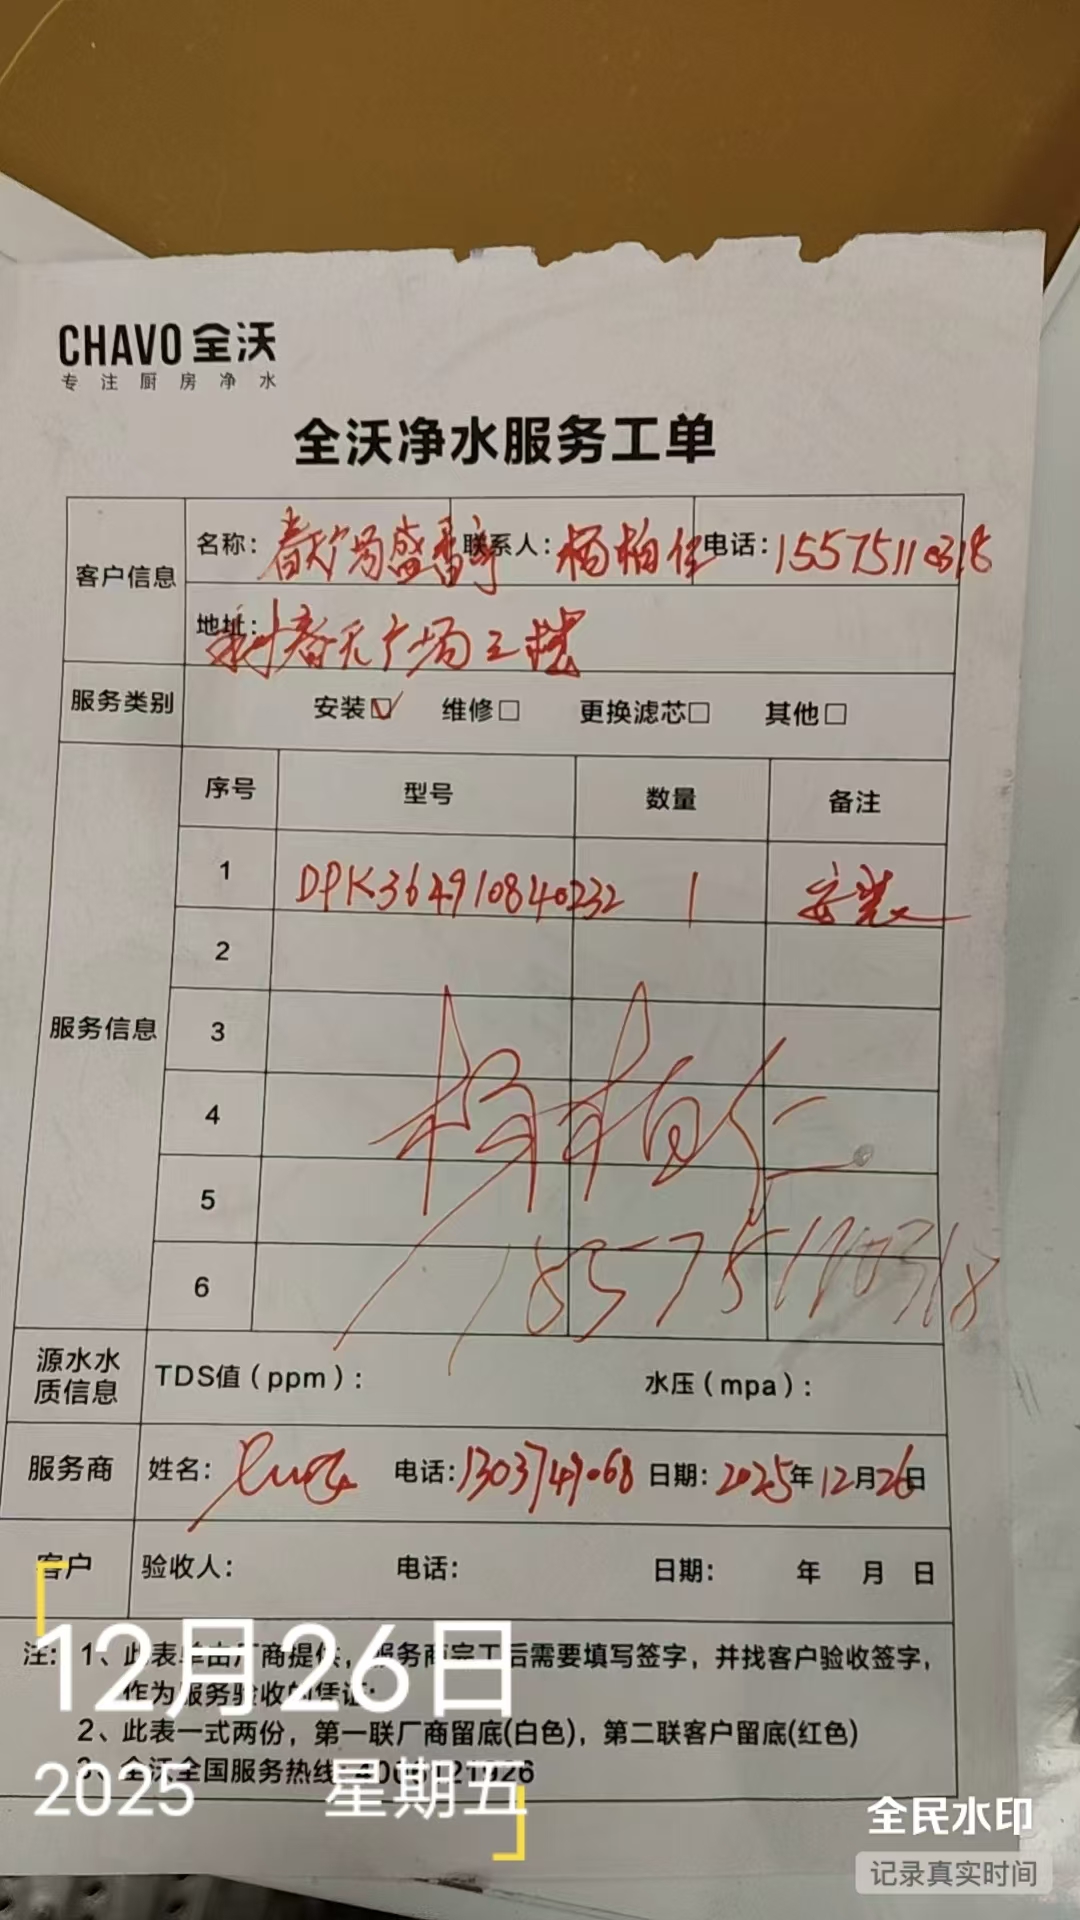 CHAVO 全沃
专注厨房净水
全沃净水服务工单
客户信息
名称: 联系人: 杨柏仁 电话: 15575110318
地址: 春天广场三楼
服务类别 安装☑ 维修□ 更换滤芯□ 其他□
服务信息
序号 型号 数量 备注
1 DPK364910840232 1 安装
2
3
4
5
6
杨柏仁
源水水质信息 TDS值(ppm): 水压(mpa):
服务商 姓名: 电话: 1303749068 日期: 2025年12月26日
客户 验收人: 电话: 日期: 年 月 日
注: 1、此表单由厂商提供,服务商完工后需要填写签字,并找客户验收签字,
作为服务验收的凭证;
2、此表一式两份,第一联厂商留底(白色),第二联客户留底(红色)
3、全沃全国服务热线
12月26日
2025 星期五
全民水印
记录真实时间